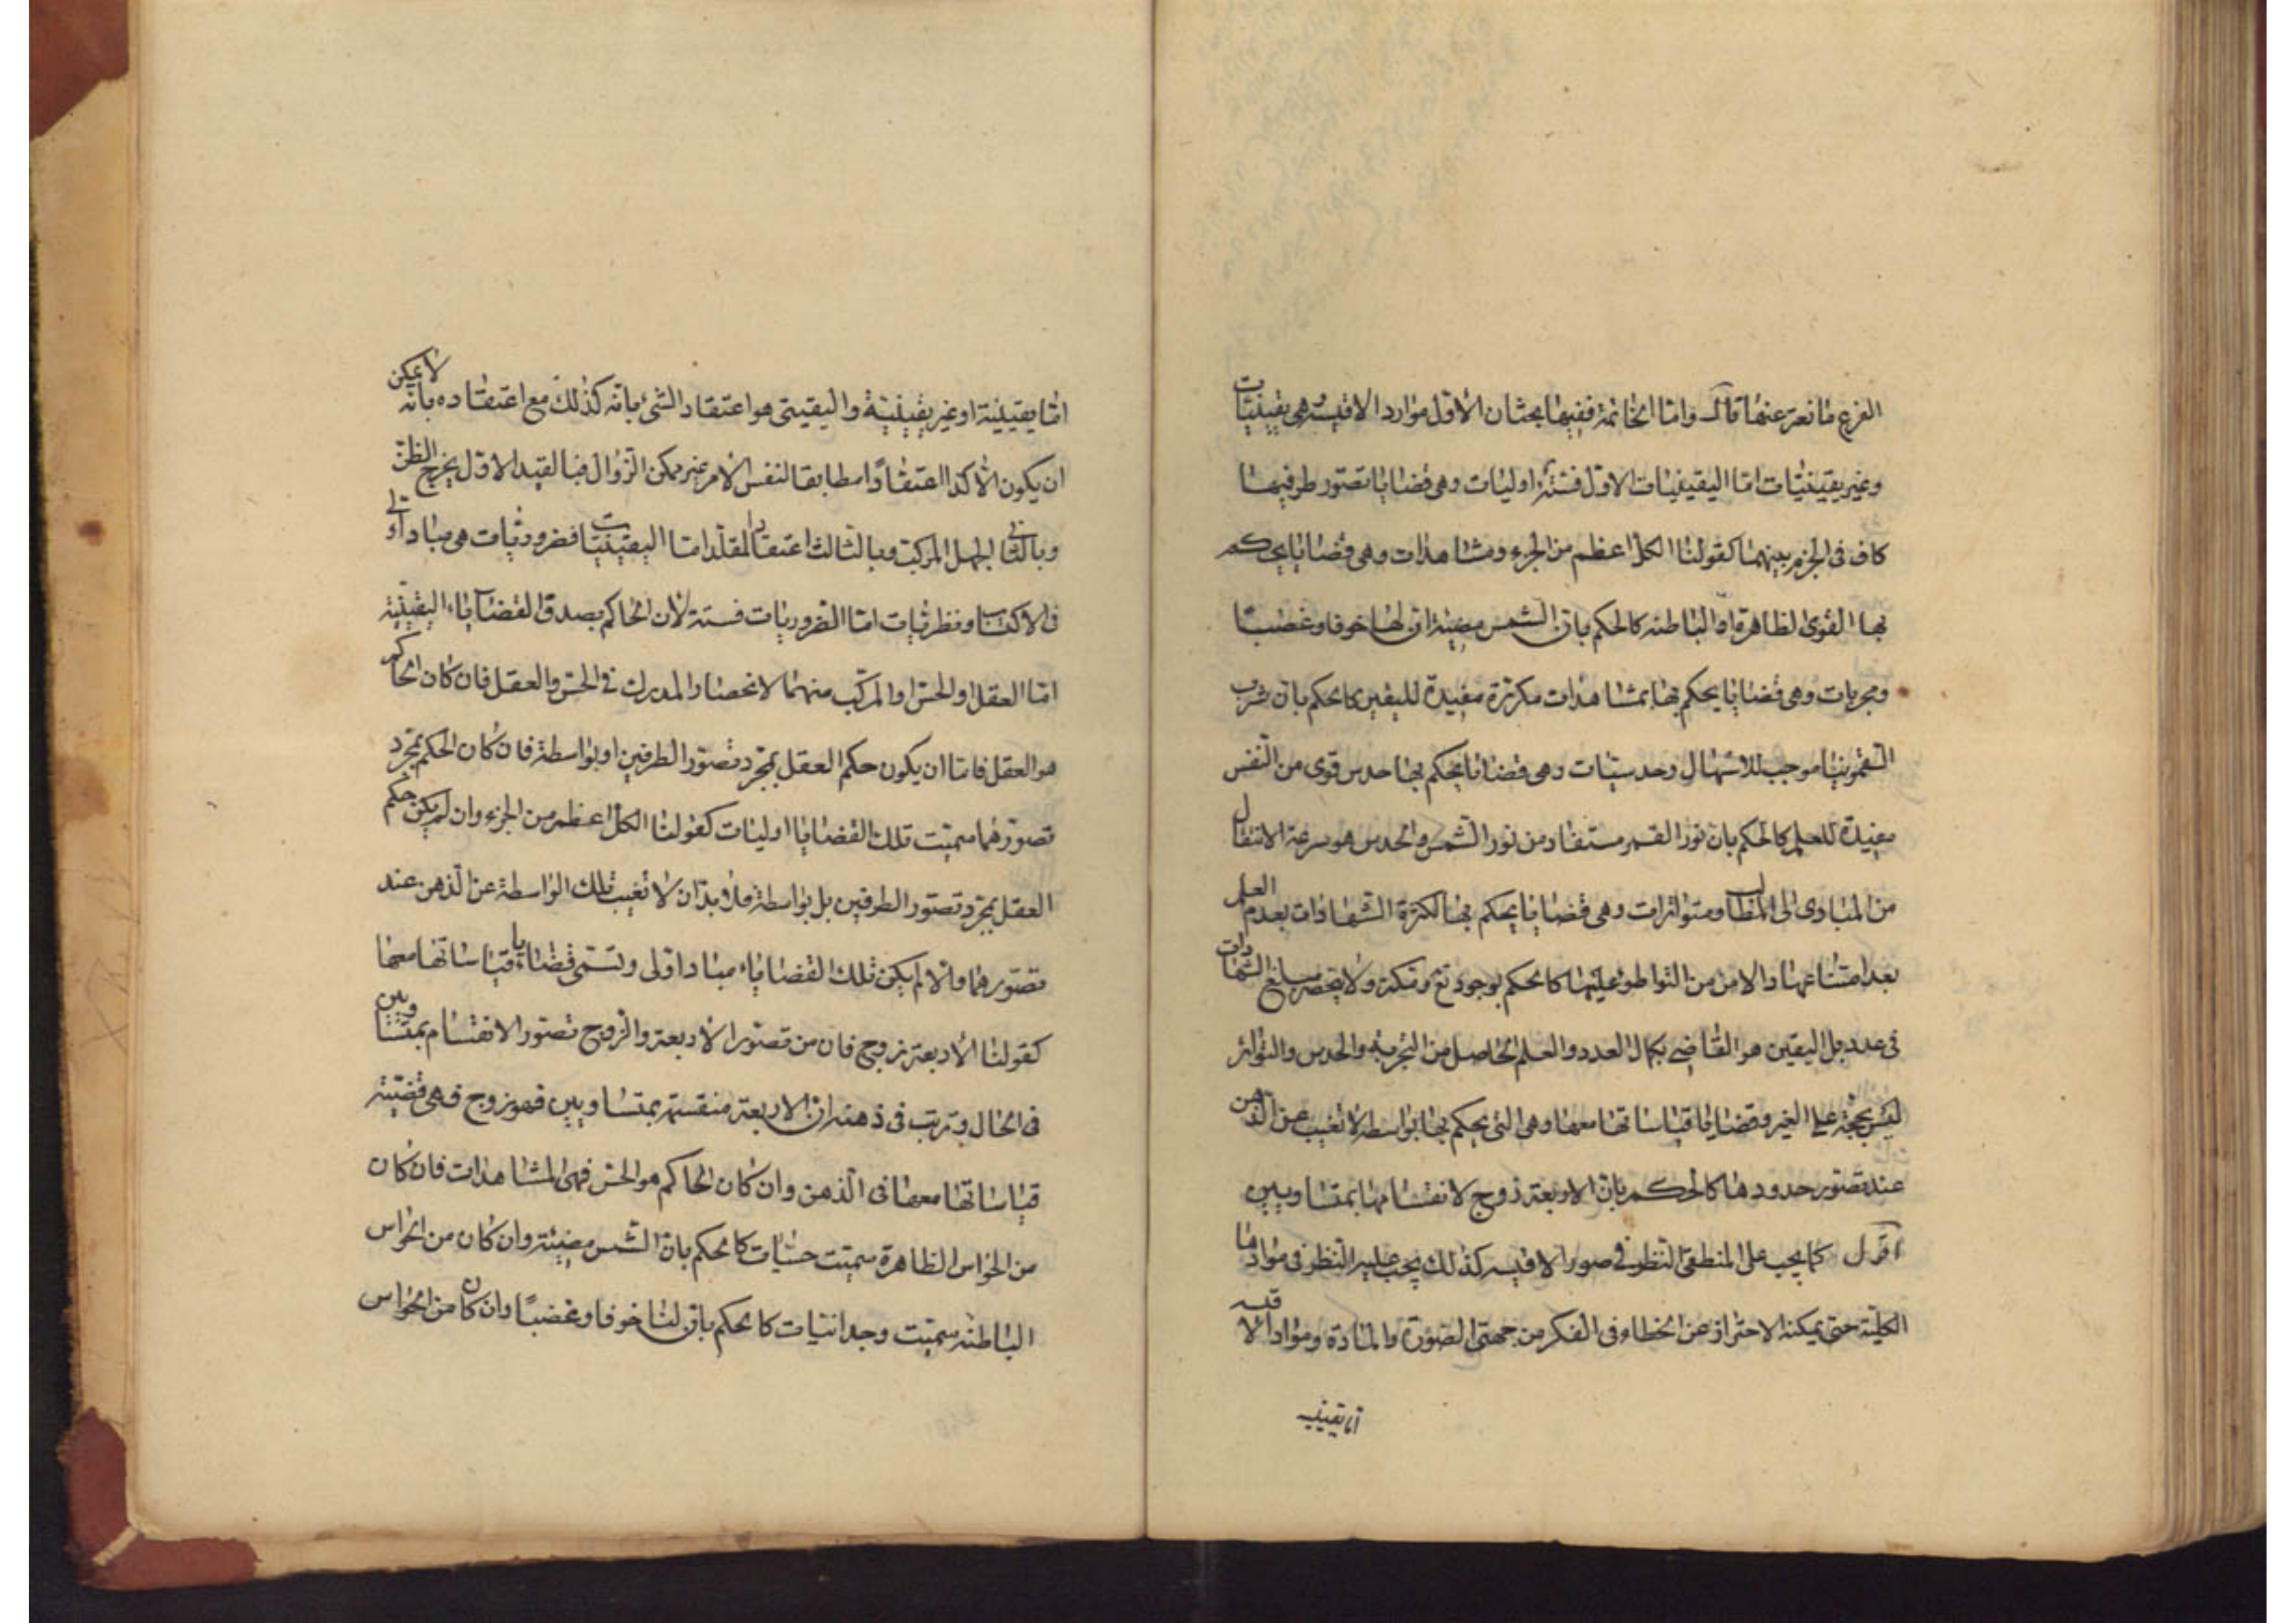 الفرع مانعة عنها قال واما الخاتمة ففيها بحثان الاول مواد الاقيسة وهي يقينيات
وغير يقينيات اما اليقينيات الاول فستة اوليات وهي قضايا تصور طرفيها
كاف في الجزم بينهما كقولنا الكل اعظم من الجزء ومشاهدات وهي قضايا يحكم
بها القوى الظاهرة او الباطنه كالحكم بان الشمس مضيئة ان لها خوفا وغضبا
ومجربات وهي قضايا يحكم بها بمشاهدات مكررة مفيدة لليقين كالحكم بان شرب
السقمونيا موجب للاسهال وحدسيات وهي قضايا يحكم بها حدس قوى من النفس
مفيدة للعلم كالحكم بان نور القمر مستفاد من نور الشمس والحدس هو سرعة الانتقال
من المبادى الى المطالب ومتواترات وهي قضايا يحكم بها لكثرة الشهادات بعدم العلم
بعد امتناعها والامن من التواطوء عليها كالحكم بوجود ومكة ولا ينحصر مبلغ الشهادات
في عدد بل اليقين هو القاضي بكمال العدد والعلم الحاصل من التجربة والحدس والتواتر
ليس بحجة على الغير وقضايا قياساتها معها وهي التي يحكم بها بواسطة لا تغيب عن الذهن
عند تصور حدودها كالحكم بان الاربعة زوج لانقسامها بمتساويين
اقول كما يجب على المنطقي النظر في صور الاقيسه كذلك يجب عليه النظر في موادها
الكلية حتى يمكنه الاحتراز عن الخطاء في الفكر من جهتي الصورة والمادة ومواد الاقيسه
اما يقينيه
اما يقينية او غير يقينية واليقيني هو اعتقاد الشئ بانه كذلك مع اعتقاده بانه لا يمكن
ان يكون الا كذا اعتقادا مطابقا لنفس الامر غير ممكن الزوال فبالقيد الاول يخرج الظن
وبالثاني الجهل المركب وبالثالث اعتقاد المقلد اما اليقينيات فضروريات هي مباد اولى
في الاكتساب ونظريات اما الضروريات فستة لان الحاكم بصدق القضايا اليقينية
اما العقل او الحس او المركب منهما لانحصار المدرك في الحس والعقل فان كان الحاكم
هو العقل فاما ان يكون حكم العقل بمجرد تصور الطرفين او بواسطة فان كان الحكم بمجرد
تصورهما سميت تلك القضايا اوليات كقولنا الكل اعظم من الجزء وان لم يكن حكم
العقل بمجرد تصور الطرفين بل بواسطة فلا بد ان لا تغيب تلك الواسطة عن الذهن عند
تصورهما والا لم يكن تلك القضايا مباد اولى وتسمى قضايا قياساتها معها
كقولنا الاربعة زوج فان من تصور الاربعة والزوج تصور الانقسام بمتساويين
في الحال وترتب في ذهنه ان الاربعة منقسمة بمتساويين فهو زوج فهي قضية
قياساتها معها في الذهن وان كان الحاكم هو الحس فهي المشاهدات فان كان
من الحواس الظاهرة سميت حسيات كالحكم بان الشمس مضيئة وان كان من الحواس
الباطنه سميت وجدانيات كالحكم بان لنا خوفا وغضبا وان كان من الحواس